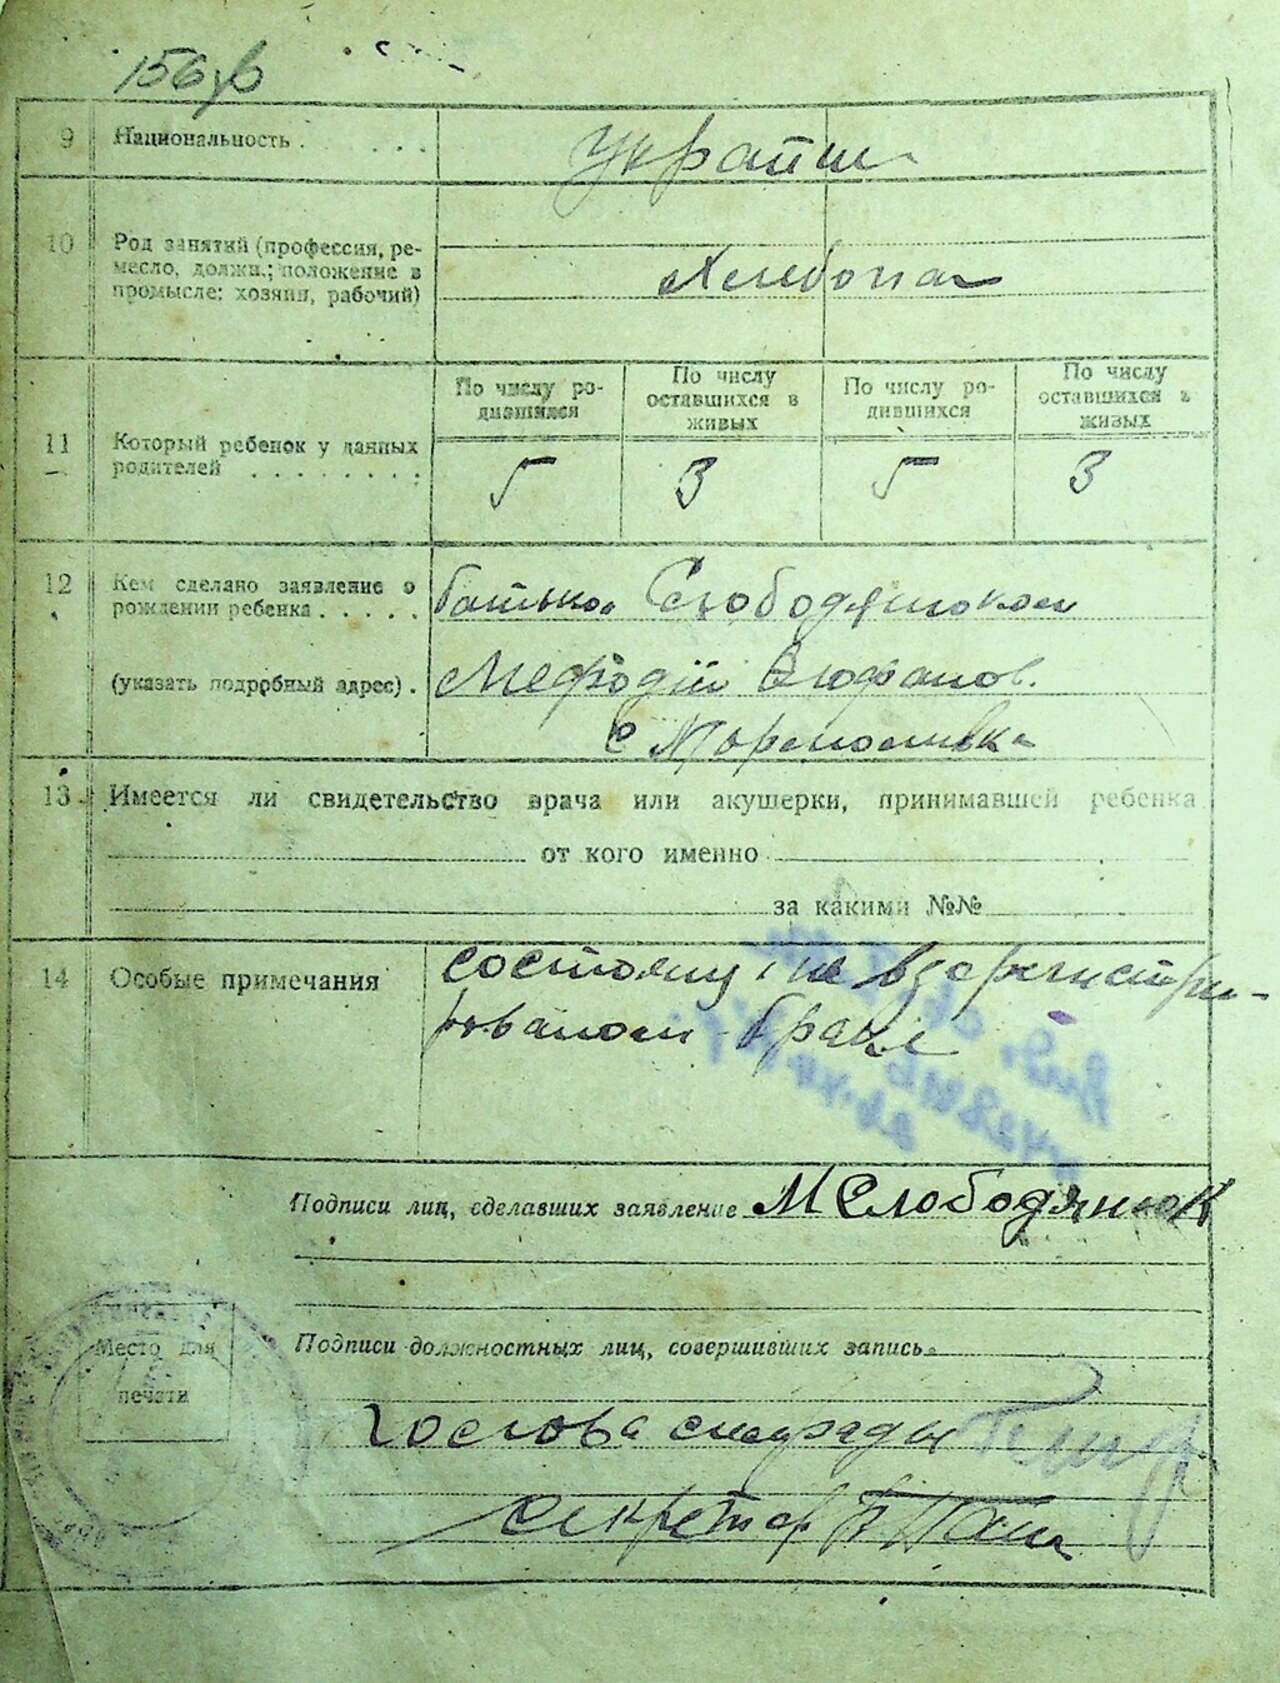 156 зв
9 Национальность . . . . Украïн
10 Род занятий (профессия, ре-
месло, должн.; положение в
промысле: хозяин, рабочий)
Хлебопа
По числу ро-
дившихся
По числу
оставшихся в
живых
По числу ро-
дившихся
По числу
оставшихся в
живых
11 Который ребенок у данных
родителей . . . . . . . .
5 3 5 3
12 Кем сделано заявление о
рождении ребенка . . . . .
(указать подробный адрес) .
батьком Слободянюком
Мефодій
с
13 Имеется ли свидетельство врача или акушерки, принимавшей ребенка
от кого именно
за какими №№
14 Особые примечания
состоящи не в зарегистри-
рованом браке
Подписи лиц, сделавших заявление М Слободянюк
Место для
печати
Подписи должностных лиц, совершивших запись
голова сільради
секретар